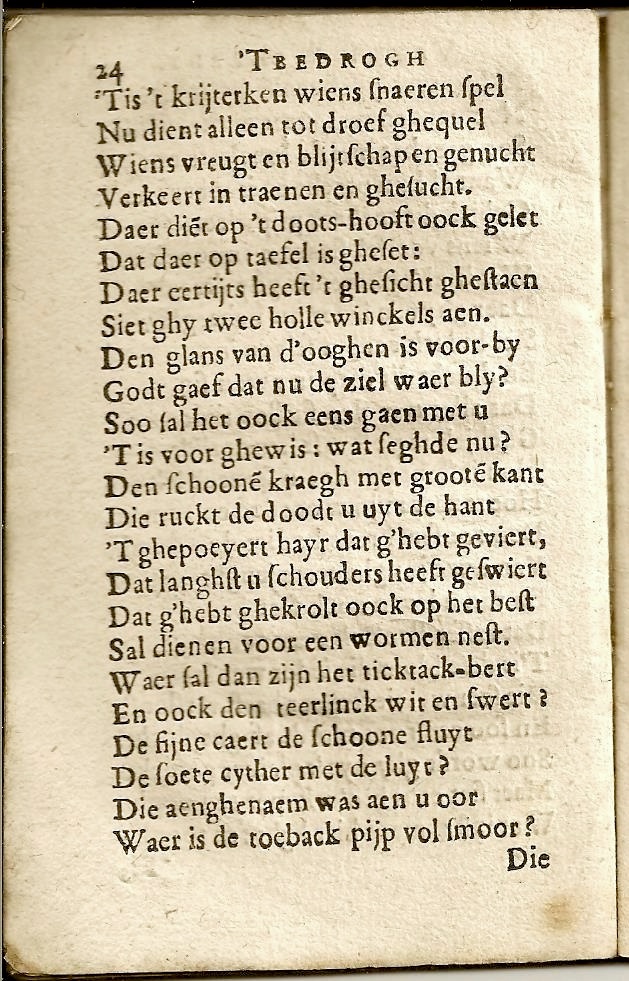 24 'TBEDROGH
'Tis 't krijterken wiens ſnaeren ſpel
Nu dient alleen tot droef ghequel
Wiens vreugt en blijtſchap en genucht
Verkeert in traenen en gheſucht.
Daer diēt op 't doots-hooft oock gelet
Dat daer op taefel is gheſet:
Daer eertijts heeft 't gheſicht gheſtaen
Siet ghy twee holle winckels aen.
Den glans van d'ooghen is voor-by
Godt gaef dat nu de ziel waer bly?
Soo ſal het oock eens gaen met u
'T is voor ghewis : wat ſeghde nu?
Den ſchoonē kraegh met grootē kant
Die ruckt de doodt u uyt de hant
'T ghepoeyert hayr dat g'hebt geviert,
Dat langhſt u ſchouders heeft geſwiert
Dat g'hebt ghekrolt oock op het beſt
Sal dienen voor een wormen neſt.
Waer ſal dan zijn het ticktack-bert
En oock den teerlinck wit en ſwert ?
De fijne caert de ſchoone fluyt
De ſoete cyther met de luyt ?
Die aenghenaem was aen u oor
Waer is de toeback pijp vol ſmoor?
Die